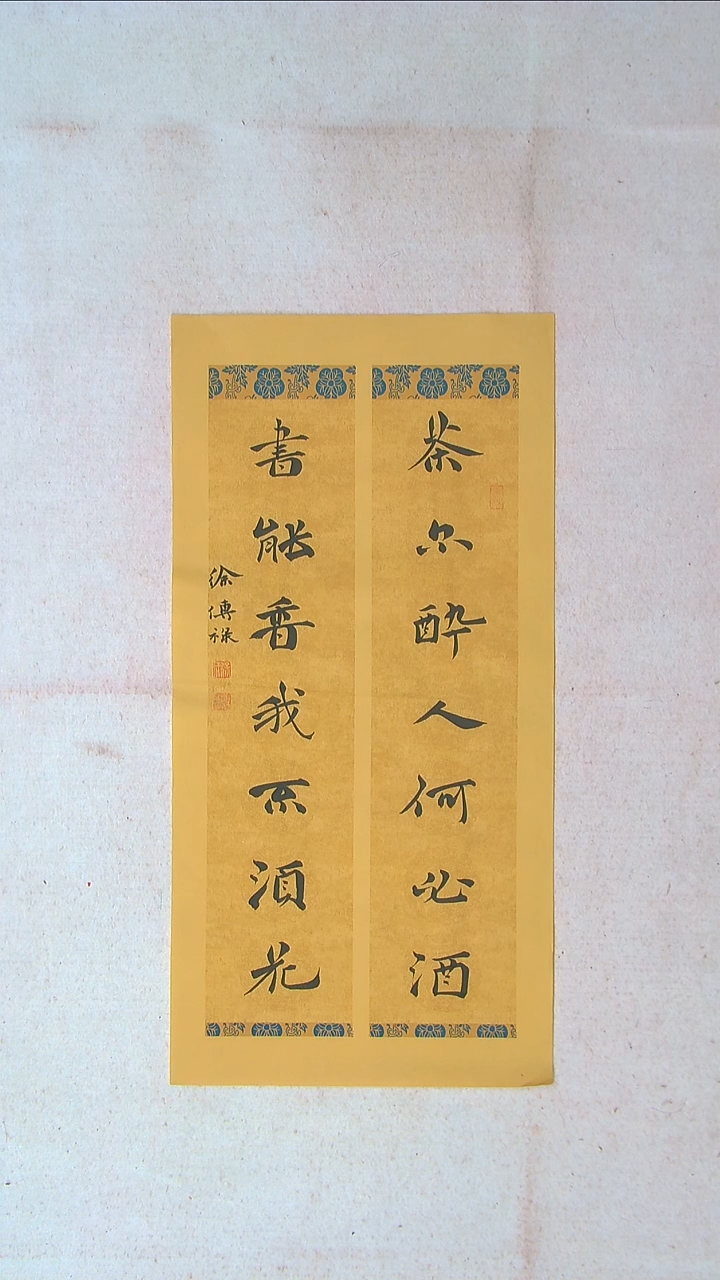 茶尒醉人何必酒
書能香我不須花
徐傳祿